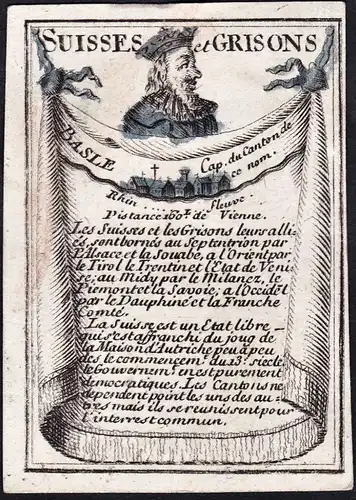 SUISSES et GRISONS
BASLE
Cap. du Canton de
ce nom.
Rhin . . . . fleuve.
Distance 160 L. de Vienne.
Les Suisses et les Grisons leurs alli-
és, sont bornés au Septentrion par
l'Alsace et la Souabe, a l'Orient par
le Tirol le Trentin et l'Etat de Veni-
se; au Midy par le Milanez, le
Piemont et la Savoie; a l'Occidẽt
par le Dauphiné et la Franche
Comté.
La Suisse est un Etat libre
qui s'est affranchi du joug de
la Maison d'Autriche peu à peu
des le commencemt. du 13e. siècle,
le Gouvernemt. en est purement
democratiques. Les Cantons ne
dependent point les uns des au-
tres mais ils se reunissent pour
l'interrest commun.